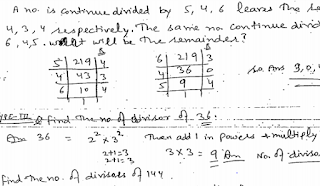 A no. is continue divided by 5, 4, 6 leaves the
4, 3, 4 respectively. The same no continue
6, 4, 5. what will be the remainder?
5 | 219 | 4    6 | 219 | 3
4 | 43 | 3    4 | 36 | 0    so Ans 3, 0,
6 | 10 | 4    5 | 9 | 4
find the no. of divisor of 36:
36 = 2² × 3²    Then add 1 in powers & multiply
2+1=3
2+1=3    3 × 3 = 9 Ans    No. of
find the no. of divisors of 144